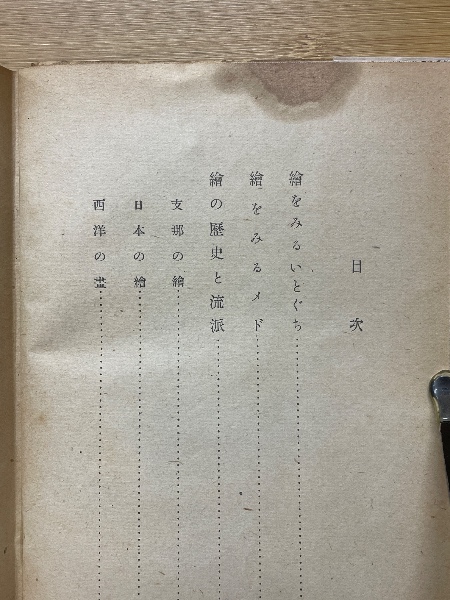 目次
繪をみるいとぐち
繪をみるメド
繪の歷史と流派
支那の繪
日本の繪
西洋の畫